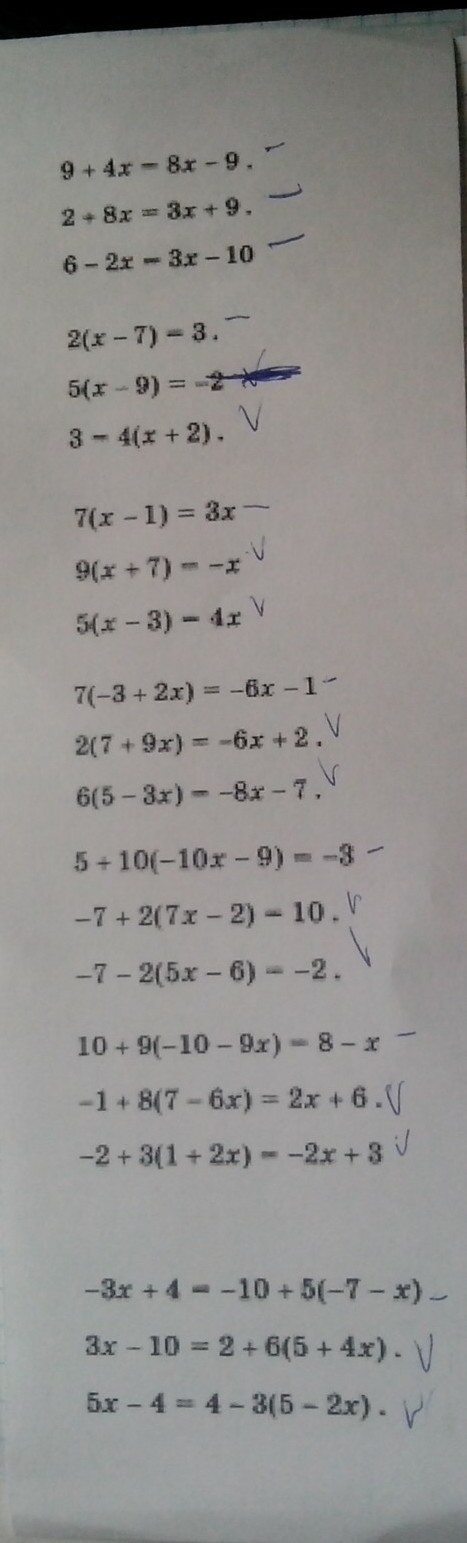 9 + 4x = 8x - 9.
2 + 8x = 3x + 9.
6 - 2x = 3x - 10
2(x - 7) = 3.
5(x - 9) = -2
3 = 4(x + 2).
7(x - 1) = 3x
9(x + 7) = -x
5(x - 3) = 4x
7(-3 + 2x) = -6x - 1
2(7 + 9x) = -6x + 2.
6(5 - 3x) = -8x - 7.
5 + 10(-10x - 9) = -3
-7 + 2(7x - 2) = 10.
-7 - 2(5x - 6) = -2.
10 + 9(-10 - 9x) = 8 - x
-1 + 8(7 - 6x) = 2x + 6.
-2 + 3(1 + 2x) = -2x + 3
-3x + 4 = -10 + 5(-7 - x)
3x - 10 = 2 + 6(5 + 4x).
5x - 4 = 4 - 3(5 - 2x).